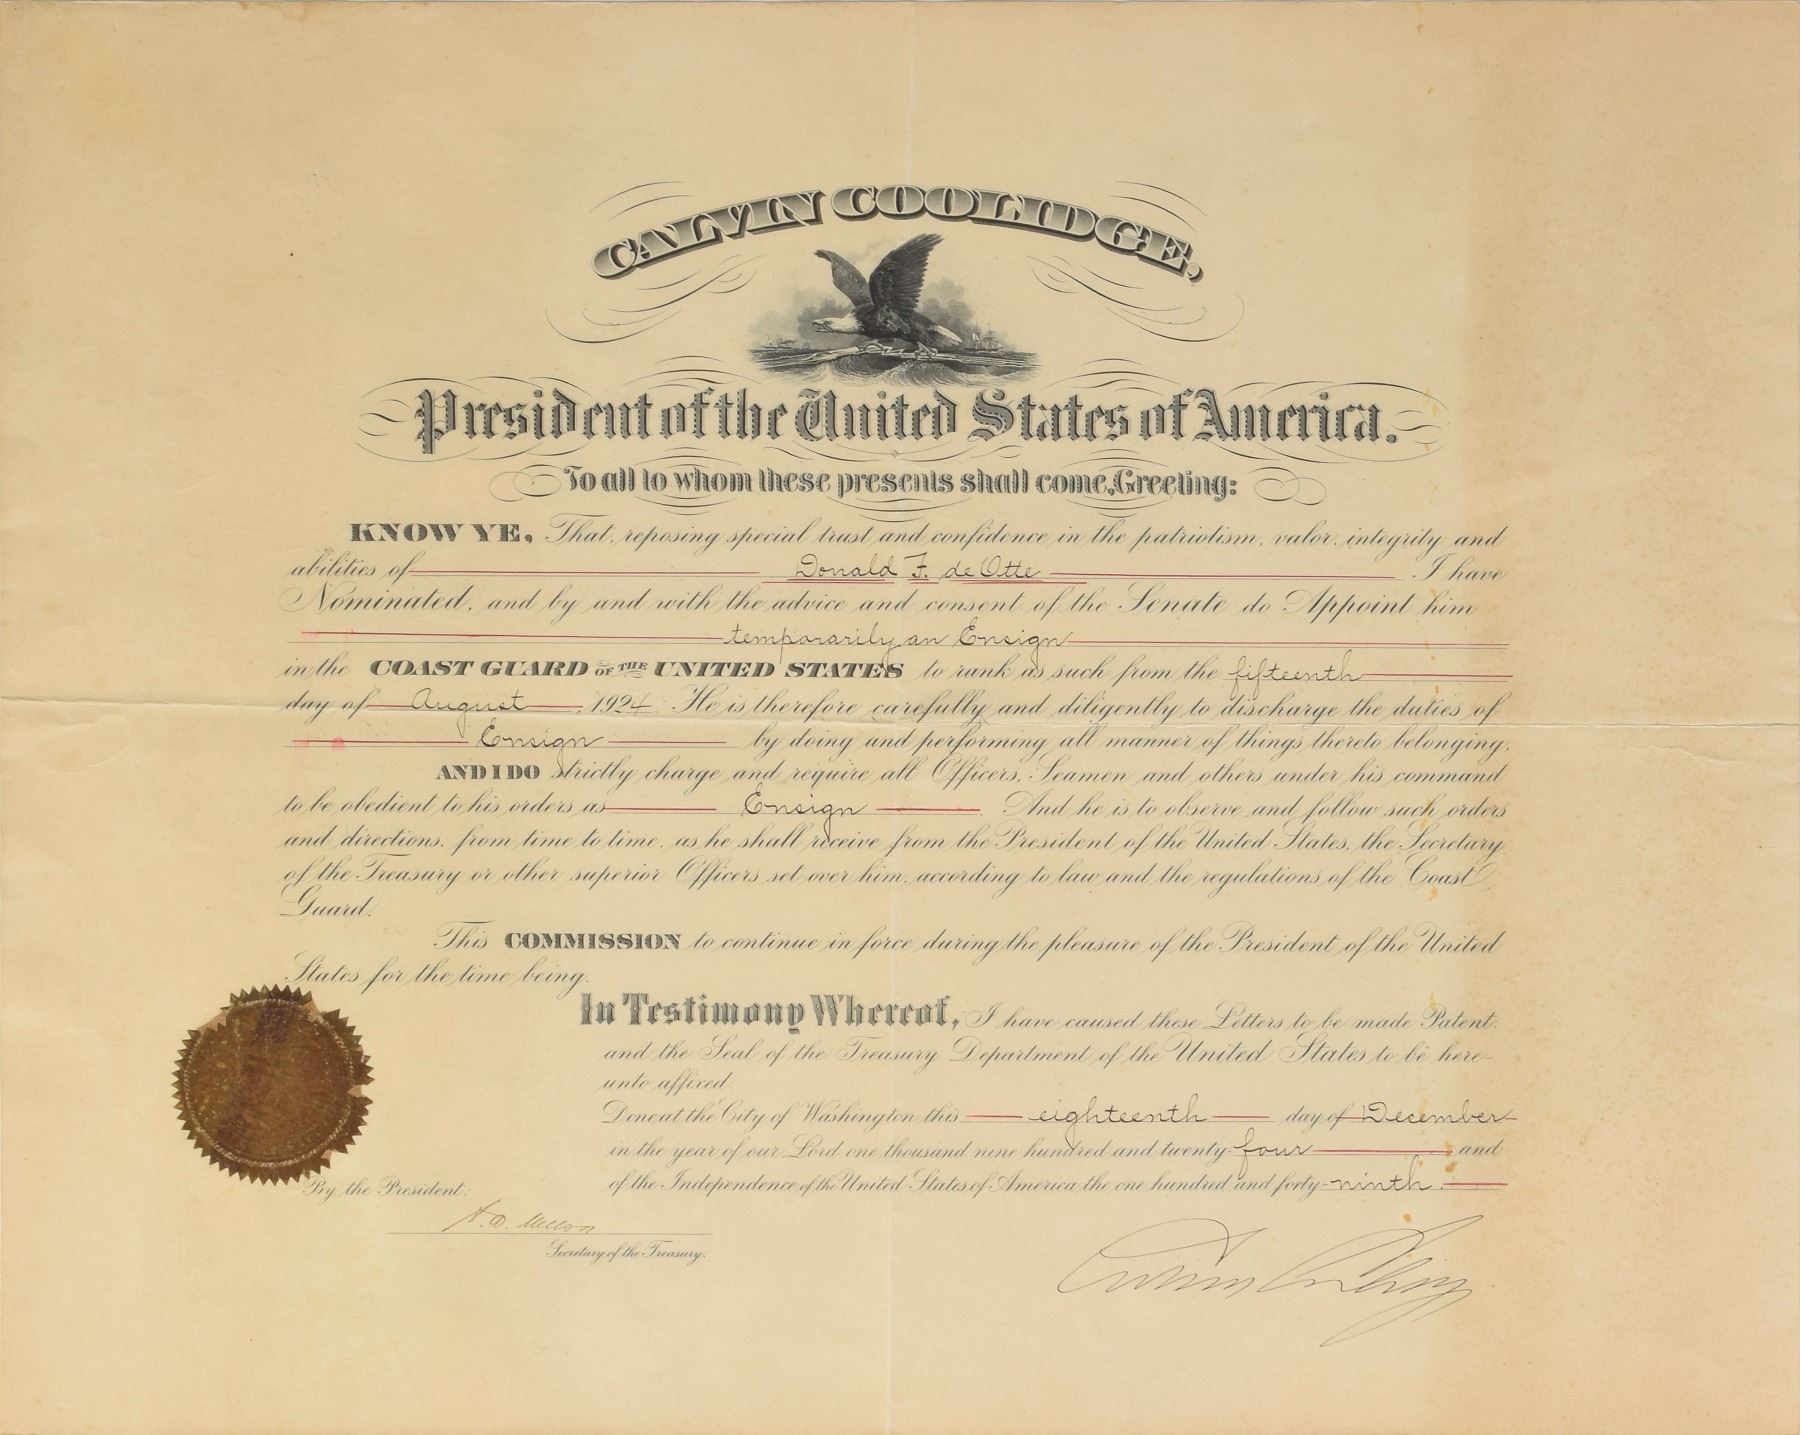 CALVIN COOLIDGE,
President of the United States of America.
To all to whom these presents shall come, Greeting:
KNOW YE, That, reposing special trust and confidence in the patriotism, valor, integrity and
abilities of Donald F. de Otte I have
Nominated, and by and with the advice and consent of the Senate do Appoint him
temporarily an Ensign
in the COAST GUARD OF THE UNITED STATES to rank as such from the fifteenth
day of August, 1924. He is therefore carefully and diligently to discharge the duties of
Ensign by doing and performing all manner of things thereto belonging.
AND I DO strictly charge and require all Officers, Seamen and others under his command
to be obedient to his orders as Ensign. And he is to observe and follow such orders
and directions, from time to time, as he shall receive from the President of the United States, the Secretary
of the Treasury or other superior Officers set over him, according to law and the regulations of the Coast
Guard.
This COMMISSION to continue in force during the pleasure of the President of the United
States for the time being.
In Testimony Whereof, I have caused these Letters to be made Patent,
and the Seal of the Treasury Department of the United States to be here-
unto affixed.
Done at the City of Washington this eighteenth day of December
in the year of our Lord one thousand nine hundred and twenty-four and
of the Independence of the United States of America the one hundred and forty-ninth.
By the President:
A. W. Mellon
Secretary of the Treasury.
Calvin Coolidge